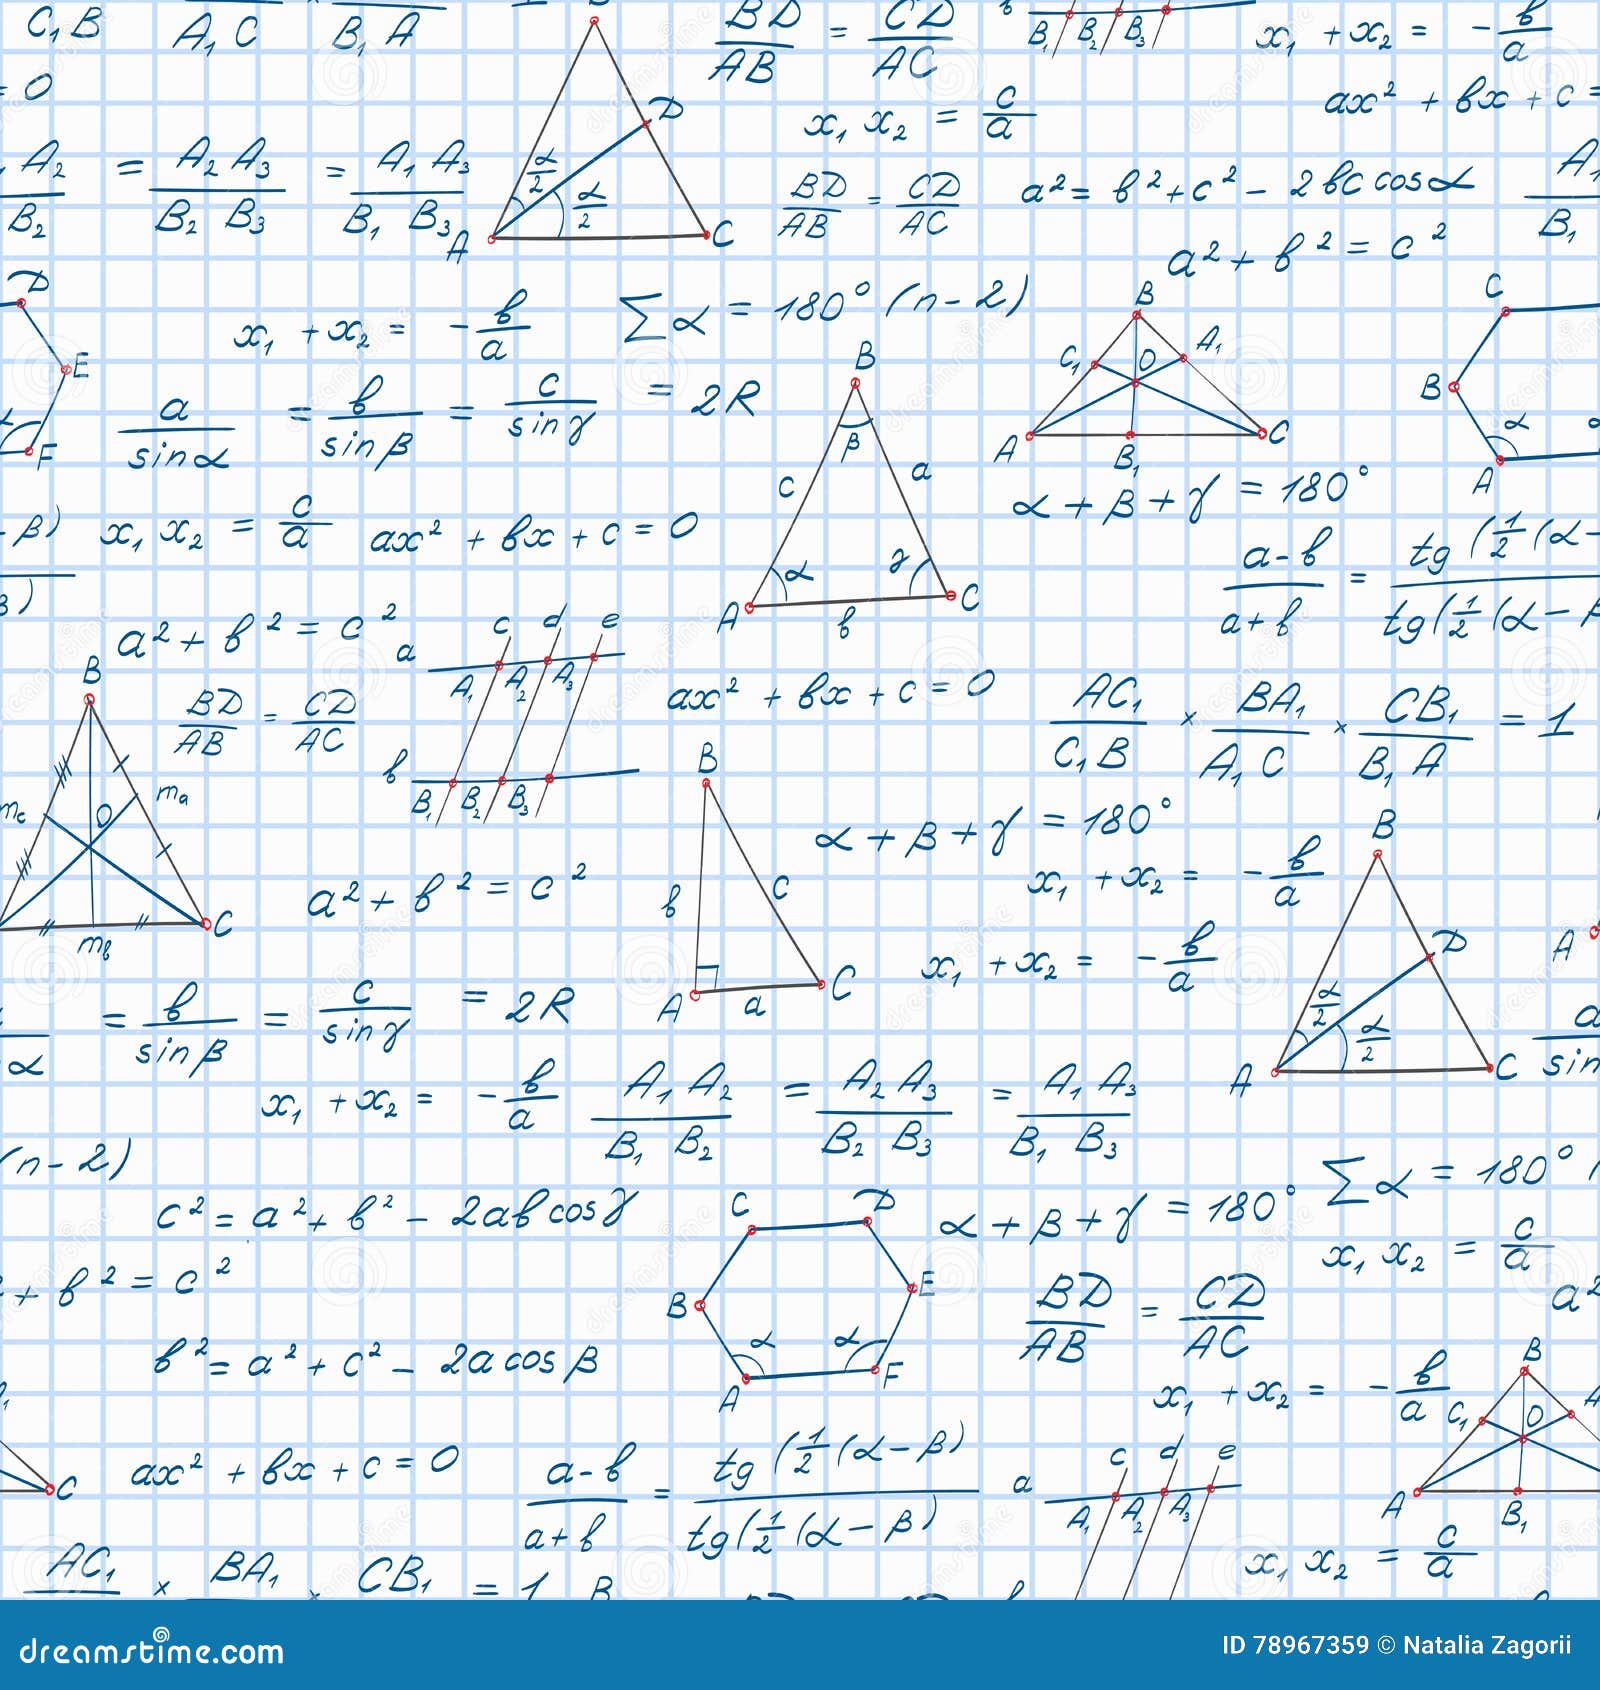 C₁B A₁C B₁A
BD/AB = CD/AC
B₁ B₂ B₃
x₁ + x₂ = - b/a
= 0
x₁ x₂ = c/a
ax² + bx + c =
A₂/B₂ = A₂A₃/B₂B₃ = A₁A₃/B₁B₃
A D C α/2 α/2
BD/AB = CD/AC
a² = b² + c² - 2bc cosα
a² + b² = c²
D E F
x₁ + x₂ = - b/a
∑α = 180° (n-2)
B C₁ O A₁ A B₁ C
C B A α
a/sinα = b/sinβ = c/sinγ = 2R
B β c a α γ A b C
α + β + γ = 180°
x₁ x₂ = c/a
ax² + bx + c = 0
a-b/a+b = tg(½(α-/tg(½(α-β
a² + b² = c²
a c d e A₁ A₂ A₃
b B₁ B₂ B₃
B mc O ma mb C
BD/AB = CD/AC
ax² + bx + c = 0
AC₁/C₁B × BA₁/A₁C × CB₁/B₁A = 1
B b c A a C
α + β + γ = 180°
x₁ + x₂ = - b/a
a² + b² = c²
x₁ + x₂ = - b/a
B D α/2 α/2 A C
A
α = b/sinβ = c/sinγ = 2R
a/sin
x₁ + x₂ = - b/a
A₁A₂/B₁B₂ = A₂A₃/B₂B₃ = A₁A₃/B₁B₃
(n-2)
∑α = 180°
c² = a² + b² - 2ab cosγ
C D E B α α A F
α + β + γ = 180°
x₁ x₂ = c/a
+ b² = c²
BD/AB = CD/AC
a²
b² = a² + c² - 2a cosβ
x₁ + x₂ = - b/a
B C₁ O A A B₁
C
ax² + bx + c = 0
a-b/a+b = tg(½(α-β)/tg(½(α-β)
a c d e A₁ A₂ A₃
x₁ x₂ = c/a
AC₁ × BA₁ × CB₁ = 1 B
dreamstime.com
ID 78967359 © Natalia Zagorii